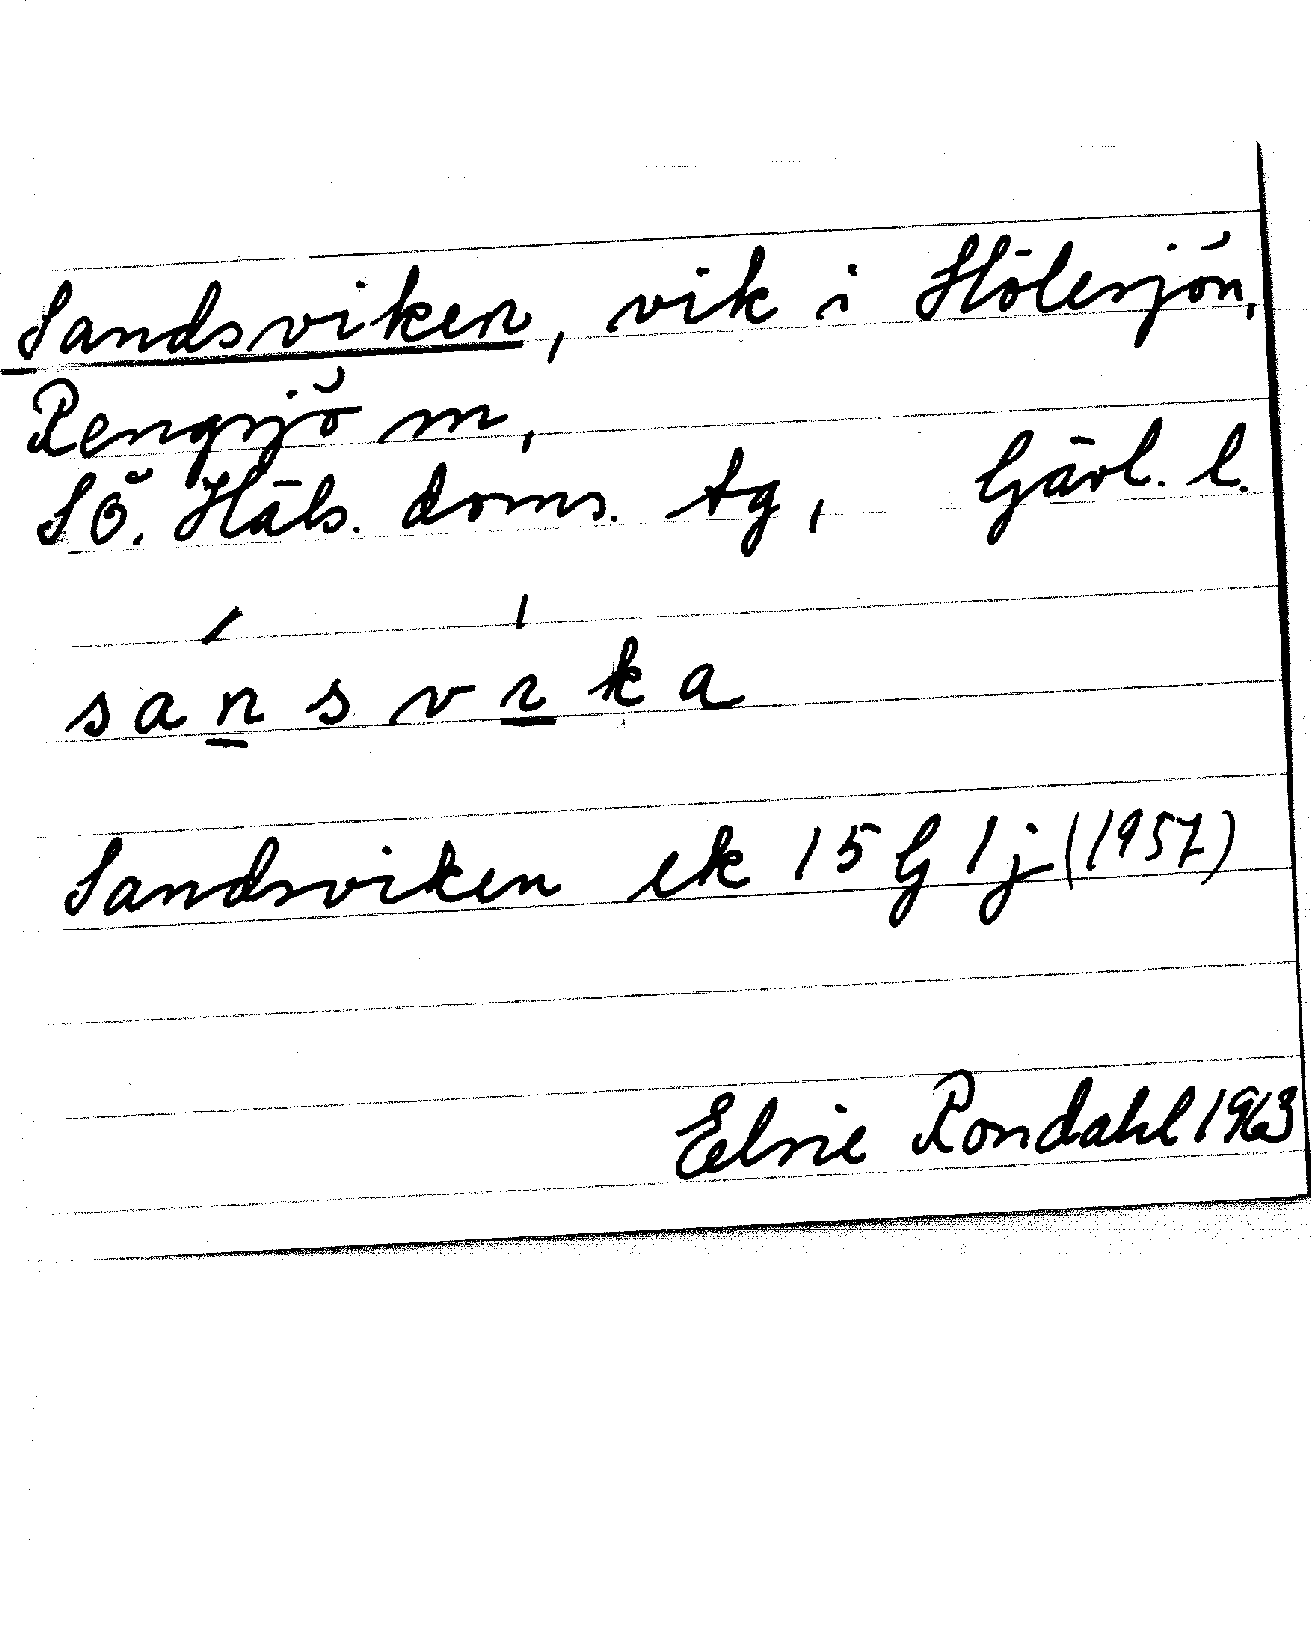 Sandsviken, vik i Hölesjön,
Rengsjö sn,
SÖ. Häls. doms. tg, Gävl. l.
sansvika
Sandsviken ek 15 G 1 j (1957)
Elsie Rondahl 1963